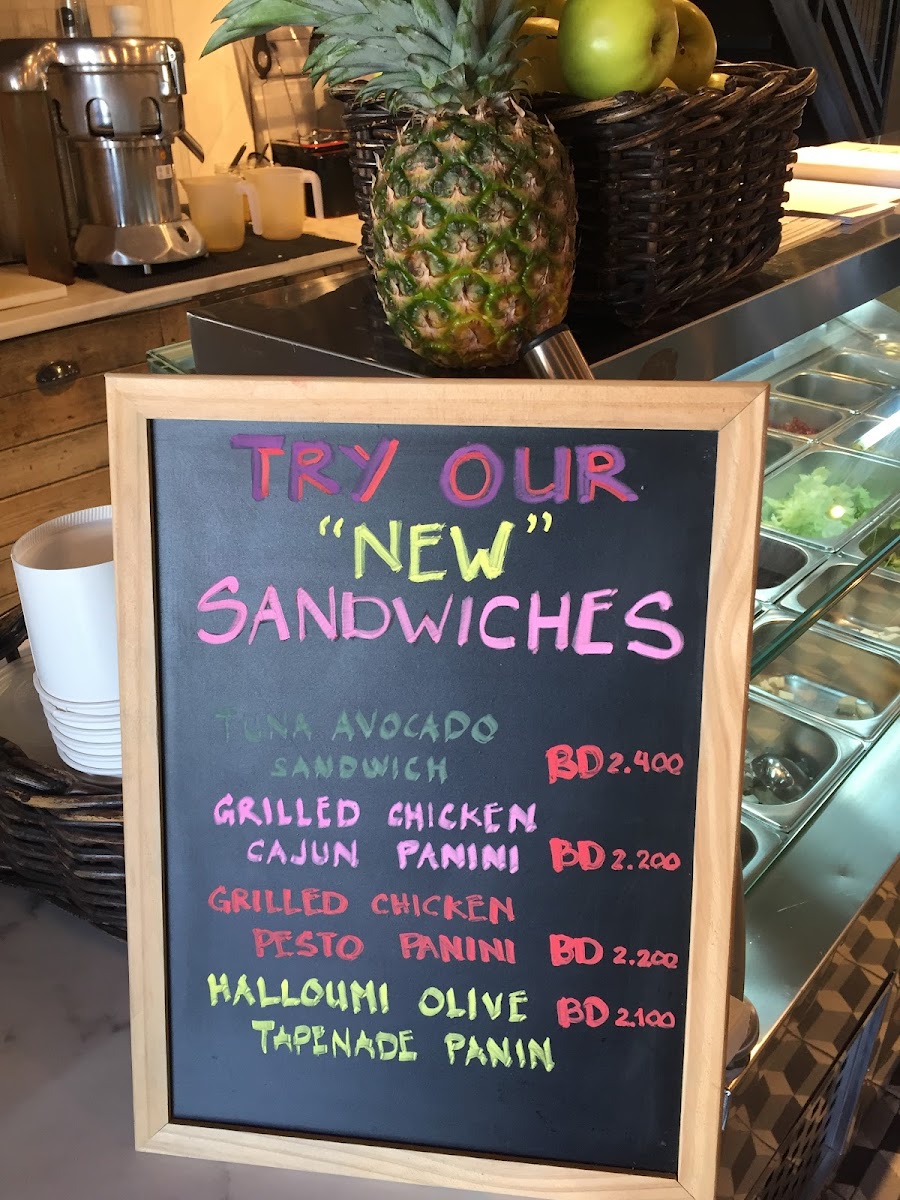 TRY OUR
"NEW"
SANDWICHES
TUNA AVOCADO
SANDWICH BD 2.400
GRILLED CHICKEN
CAJUN PANINI BD 2.200
GRILLED CHICKEN
PESTO PANINI BD 2.200
HALLOUMI OLIVE BD 2.100
TAPENADE PANIN